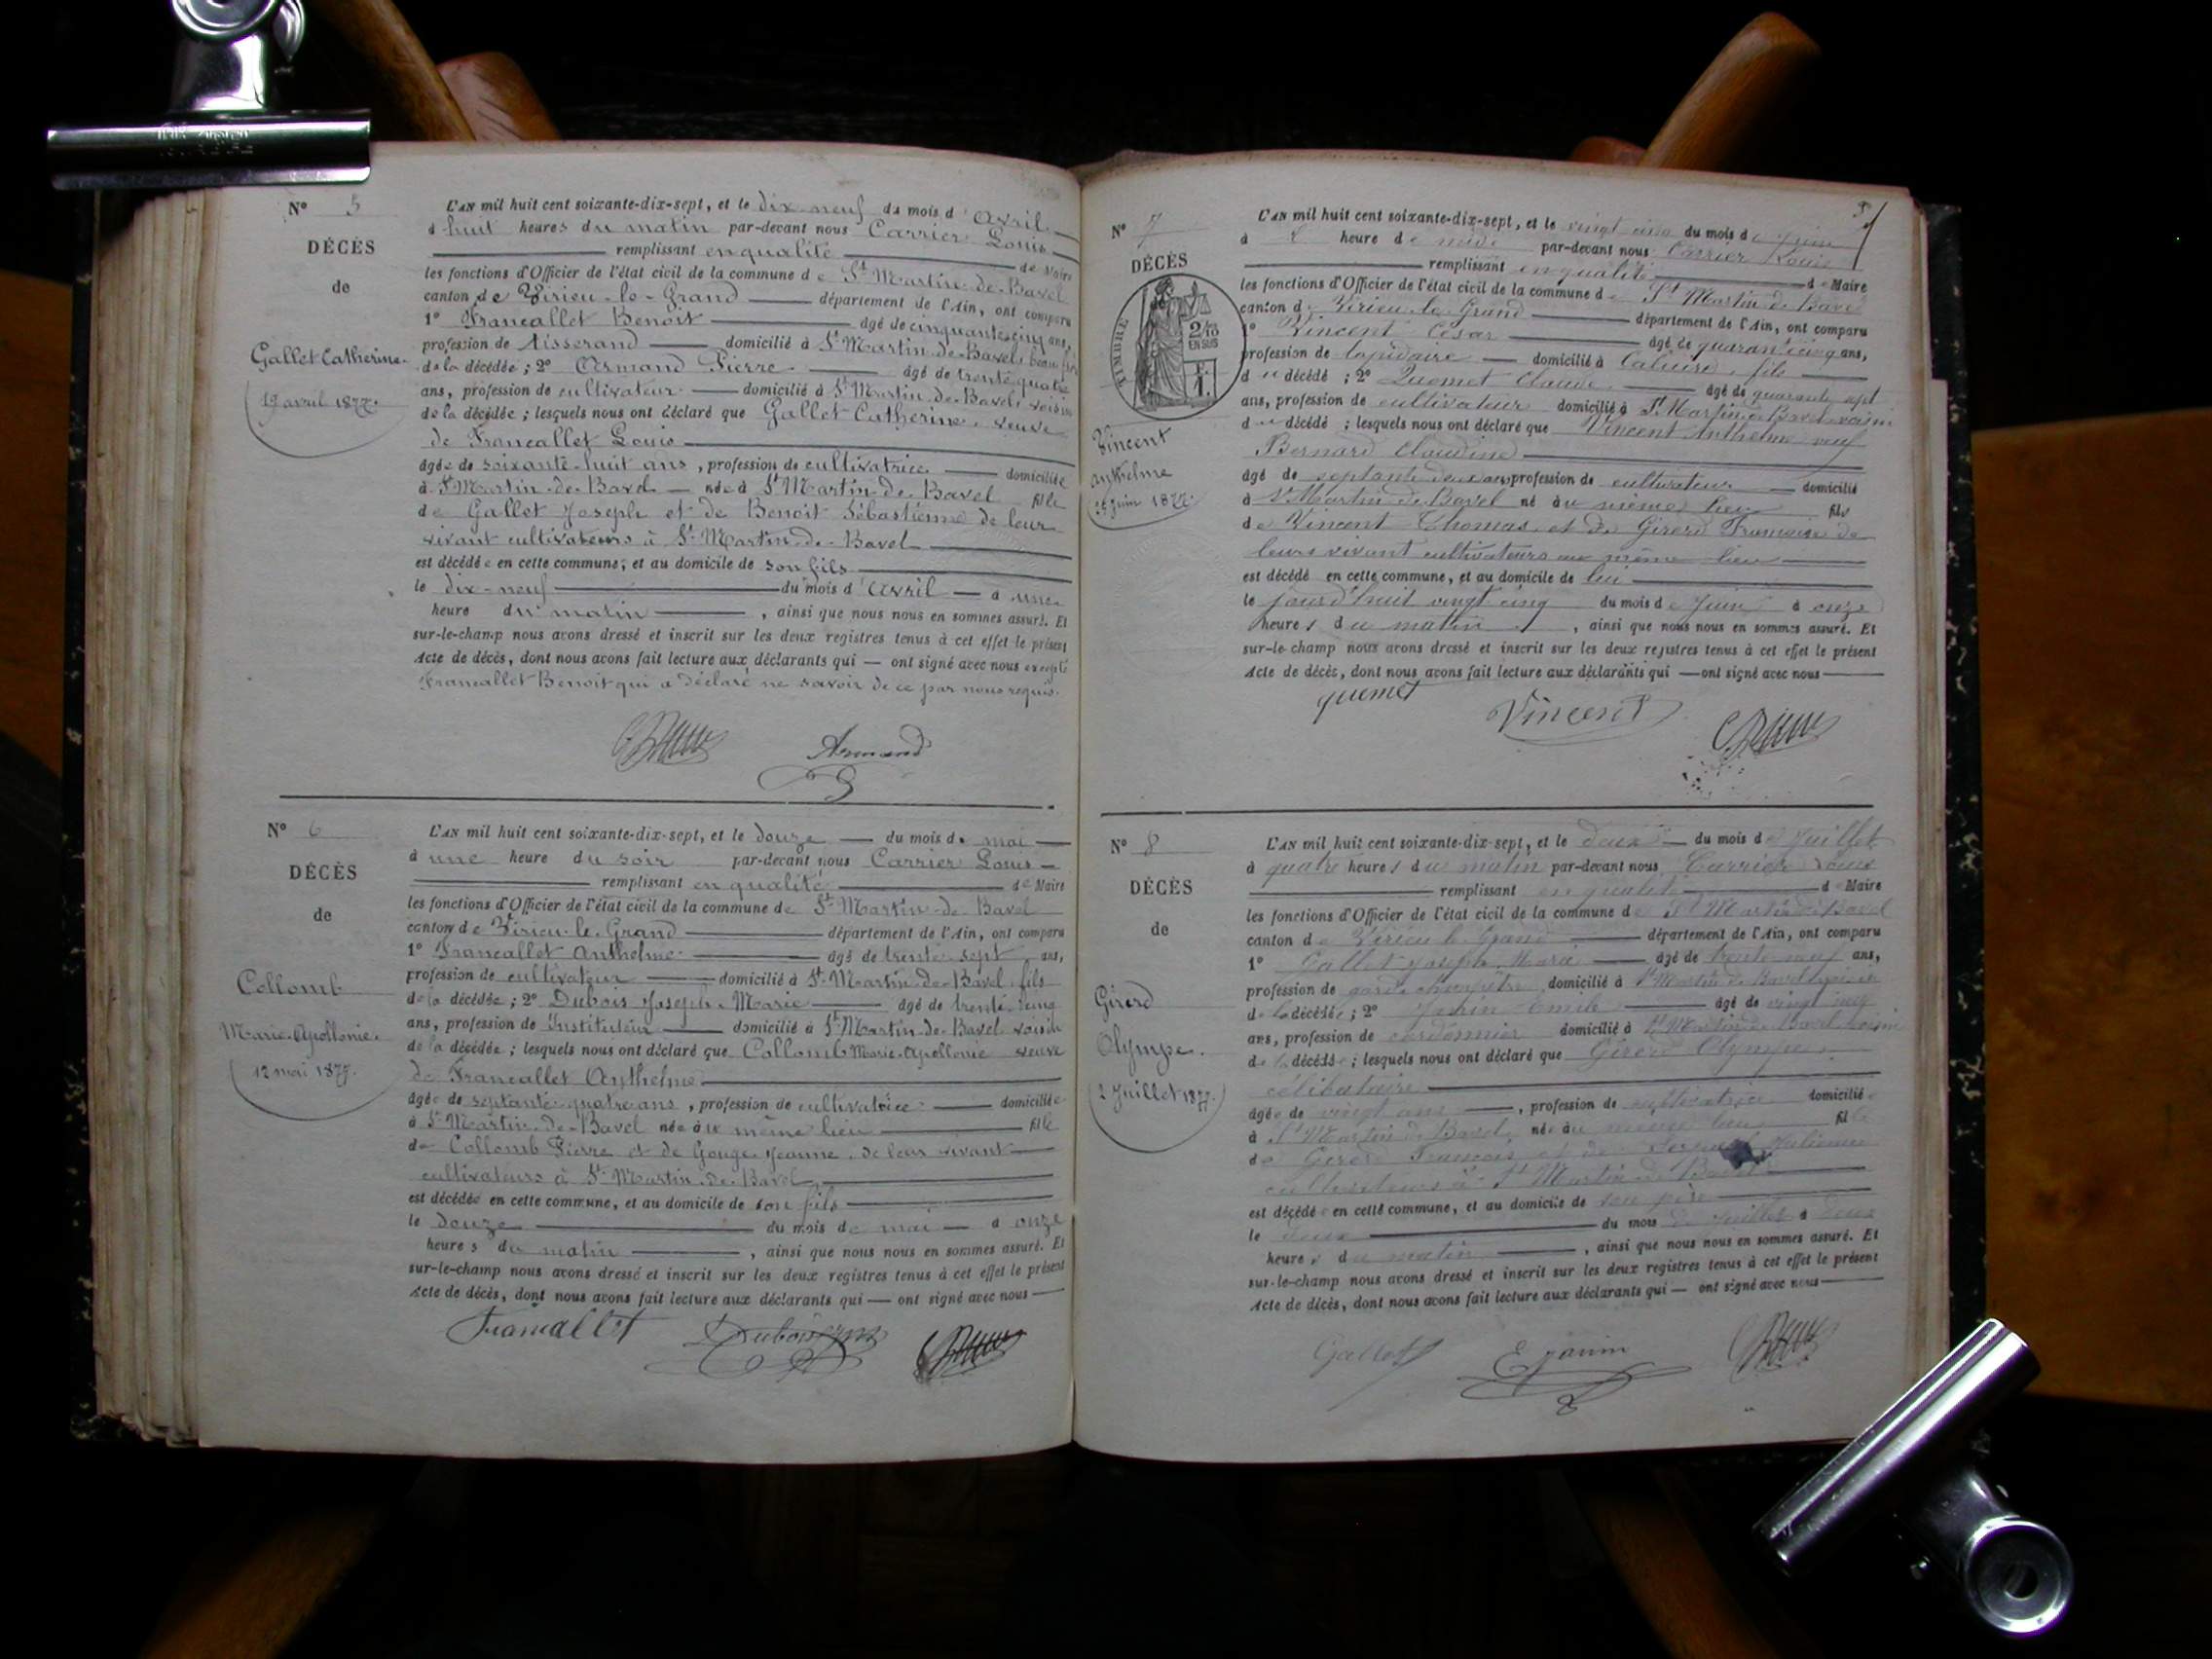 N° 5
DÉCÈS
de
Gallet Catherine.
19 avril 1877.
L'AN mil huit cent soixante-dix-sept, et le dix-neuf du mois d'Avril
à huit heures du matin par-devant nous Carrier Louis
remplissant en qualité de Maire
les fonctions d'Officier de l'état civil de la commune de St Martin-de-Bavel
canton de Virieu-le-Grand département de l'Ain, ont comparu
1° Francallet Benoit âgé de cinquante cinq ans,
profession de tisserand domicilié à St Martin-de-Bavel beau frère
de la décédée ; 2° Armand Pierre âgé de trente quatre
ans, profession de cultivateur domicilié à St Martin-de-Bavel voisin
de la décédée ; lesquels nous ont déclaré que Gallet Catherine, veuve
de Francallet Louis
âgée de soixante-huit ans, profession de cultivatrice domiciliée
à St Martin-de-Bavel née à St Martin-de-Bavel fille
de Gallet Joseph et de Benoit Sébastienne de leur
vivant cultivateurs à St Martin-de-Bavel
est décédée en cette commune, et au domicile de son fils
le dix-neuf du mois d'avril à une
heure du matin, ainsi que nous nous en sommes assuré. Et
sur-le-champ nous avons dressé et inscrit sur les deux registres tenus à cet effet le présent
Acte de décès, dont nous avons fait lecture aux déclarants qui — ont signé avec nous excepté
Francallet Benoit qui a déclaré ne savoir de ce par nous requis.
Armand
N° 6
DÉCÈS
de
Collomb
Marie-Apollonie.
12 mai 1877.
L'AN mil huit cent soixante-dix-sept, et le douze du mois de mai
à une heure du soir par-devant nous Carrier Louis
remplissant en qualité de Maire
les fonctions d'Officier de l'état civil de la commune de St Martin-de-Bavel
canton de Virieu-le-Grand département de l'Ain, ont comparu
1° Francallet Anthelme âgé de trente sept ans,
profession de cultivateur domicilié à St Martin-de-Bavel fils
de la décédée ; 2° Dubois Joseph-Marie âgé de trente cinq
ans, profession de Instituteur domicilié à St Martin-de-Bavel voisin
de la décédée ; lesquels nous ont déclaré que Collomb Marie-Apollonie veuve
de Francallet Anthelme
âgée de septante-quatre ans, profession de cultivatrice domiciliée
à St Martin-de-Bavel née au même lieu fille
de Collomb Pierre et de Gouge Jeanne de leur vivant
cultivateurs à St Martin-de-Bavel
est décédée en cette commune, et au domicile de son fils
le douze du mois de mai à onze
heures du matin, ainsi que nous nous en sommes assuré. Et
sur-le-champ nous avons dressé et inscrit sur les deux registres tenus à cet effet le présent
Acte de décès, dont nous avons fait lecture aux déclarants qui — ont signé avec nous
Francallet Dubois
N° 7
DÉCÈS
TIMBRE
2/10
EN SUS
F.
1.
Vincent
Anthelme
25 Juin 1877.
L'AN mil huit cent soixante-dix-sept, et le vingt cinq du mois de Juin
à heure de midi par-devant nous Carrier Louis
remplissant en qualité de Maire
les fonctions d'Officier de l'état civil de la commune de St Martin de Bavel
canton de Virieu-le-Grand département de l'Ain, ont comparu
1° Vincent César âgé de quarante cinq ans,
profession de lapidaire domicilié à Caluire, fils
du décédé ; 2° Quemet Claude âgé de quarante sept
ans, profession de cultivateur domicilié à St Martin de Bavel voisin
du décédé ; lesquels nous ont déclaré que Vincent Anthelme veuf
Bernard Claudine
âgé de septante deux ans, profession de cultivateur domicilié
à St Martin de Bavel né au même lieu fils
de Vincent Thomas et de Girerd Françoise de
leurs vivant cultivateurs au même lieu
est décédé en cette commune, et au domicile de lui
le jourd'huit vingt cinq du mois de Juin à onze
heures du matin, ainsi que nous nous en sommes assuré. Et
sur-le-champ nous avons dressé et inscrit sur les deux registres tenus à cet effet le présent
Acte de décès, dont nous avons fait lecture aux déclarants qui — ont signé avec nous
quemet Vincent
N° 8
DÉCÈS
de
Girerd
Olympe.
2 Juillet 1877
L'AN mil huit cent soixante-dix-sept, et le deux du mois de Juillet
à quatre heures du matin par-devant nous Carrier Louis
remplissant en qualité de Maire
les fonctions d'Officier de l'état civil de la commune de St Martin de Bavel
canton de Virieu le Grand département de l'Ain, ont comparu
1° Gallet Joseph Marie âgé de trente neuf ans,
profession de garde champêtre, domicilié à St Martin de Bavel voisin
de la décédée ; 2° Janin Emile âgé de vingt cinq
ans, profession de cordonnier domicilié à St Martin de Bavel voisin
de la décédée ; lesquels nous ont déclaré que Girerd Olympe
célibataire
âgée de vingt ans, profession de cultivatrice domiciliée
à St Martin de Bavel née au même lieu fille
de Girerd François et de Julienne
cultivateurs à St Martin de Bavel
est décédée en cette commune, et au domicile de son père
le deux du mois de Juillet à deux
heures du matin, ainsi que nous nous en sommes assuré. Et
sur-le-champ nous avons dressé et inscrit sur les deux registres tenus à cet effet le présent
Acte de décès, dont nous avons fait lecture aux déclarants qui — ont signé avec nous
Gallet E janin